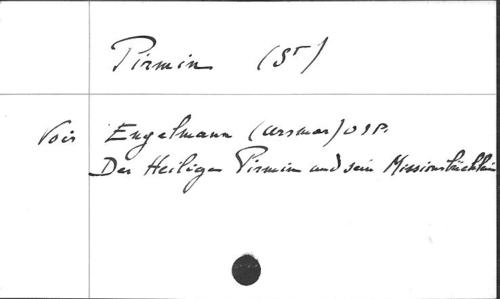 Pirmin (St)
Voir Engelmann (Ursmar) OSB.
Der Heilige Pirmin und sein Missionsbüchlein